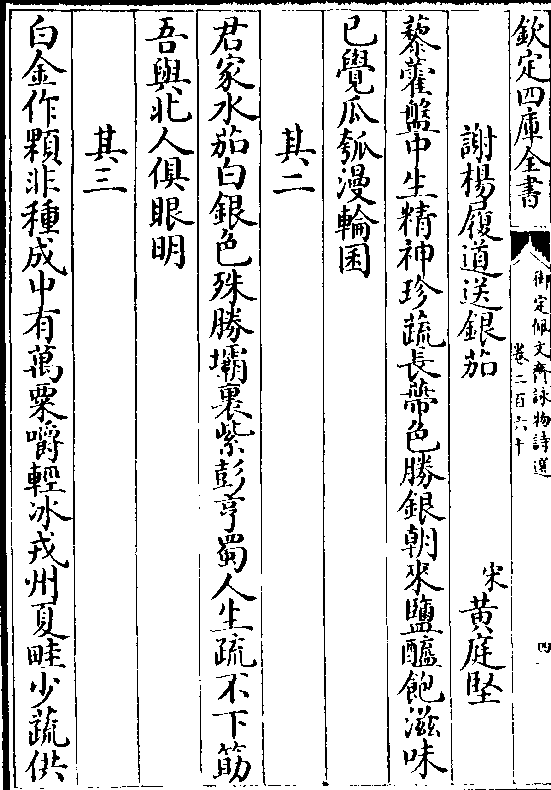 欽定四庫全書
御定佩文齋詠物詩選
卷二百六十
四
謝楊履道送銀茄
宋
黃庭堅
藜藿盤中生精神珍蔬長帶色勝銀朝來鹽醯飽滋味
已覺瓜瓠漫輪囷
其二
君家水茄白銀色殊勝壩裏紫彭亨蜀人生疏不下筯
吾與北人俱眼明
其三
白金作顆非種成中有萬粟嚼輕冰戎州夏畦少蔬供